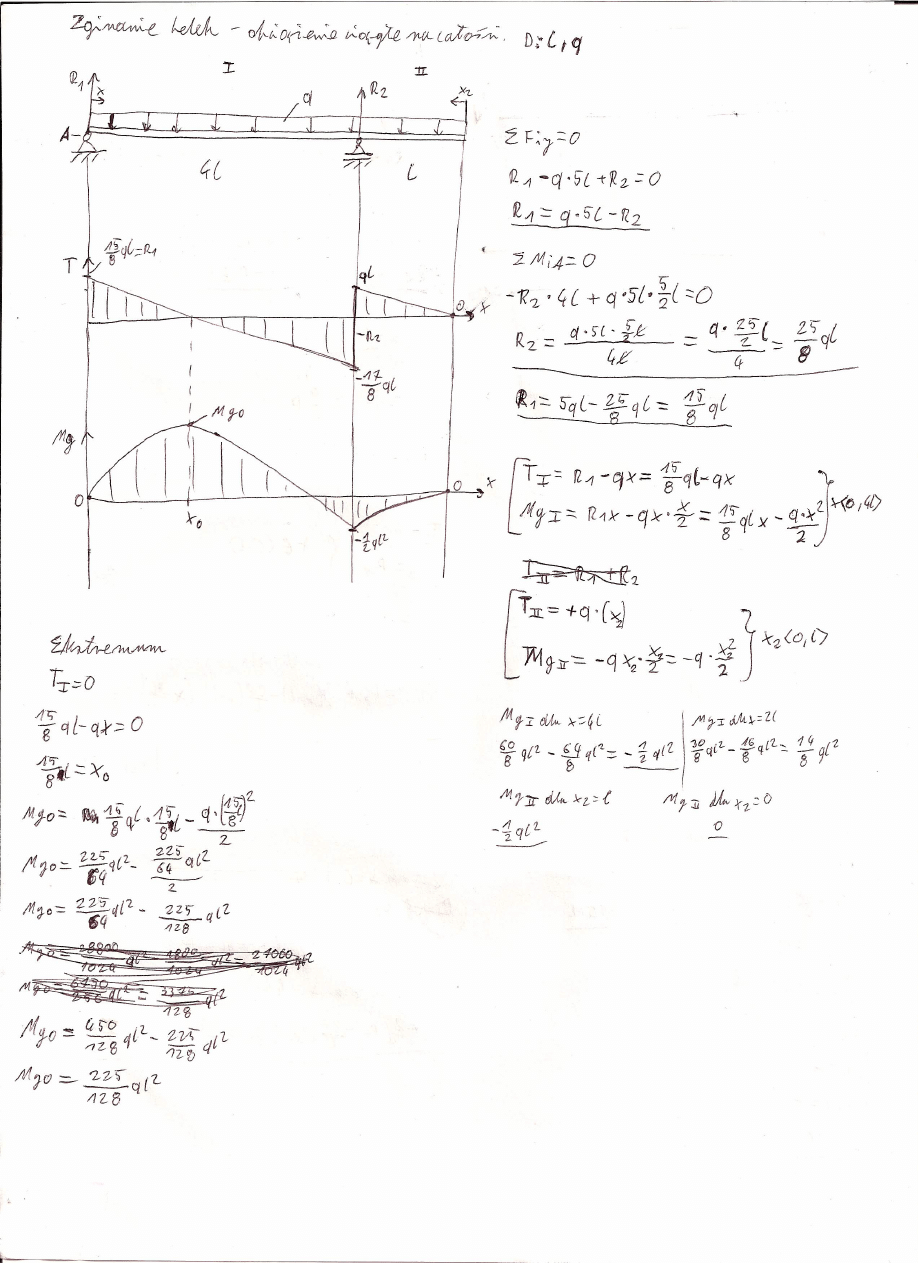 Zginanie belek - obciążenie ciągłe na całości. D: l, q
I II
R1 x q R2 x2
A
4l l
ΣFiy=0
R1 - q·5l + R2 = 0
R1 = q·5l - R2
ΣMiA=0
-R2·4l + q·5l·5/2l = 0
R2 = (q·5l·5/2l)/4l = (q·25/2l)/4 = 25/8 ql
R1 = 5ql - 25/8 ql = 15/8 ql
T 15/8 ql = R1
ql
0 x
-R2
-17/8 ql
Mg
Mg0
0 x0 0 x
-1/2 ql²
TI = R1 - qx = 15/8 ql - qx
MgI = R1x - qx·x/2 = 15/8 qlx - q·x²/2 } x<0,4l)
TII = R1 + R2
TII = +q·(x2)
MgII = -qx2·x2/2 = -q·x2²/2 } x2<0,l)
MgI dla x=4l
60/8 ql² - 64/8 ql² = -1/2 ql²
MgI dla x=2l
30/8 ql² - 16/8 ql² = 14/8 ql²
MgII dla x2=l
-1/2 ql²
MgII dla x2=0
0
Ekstremum
TI=0
15/8 ql - qx = 0
15/8 l = x0
Mg0 = 15/8 ql · 15/8 l - q·(15/8)²/2
Mg0 = 225/64 ql² - (225/64 ql²)/2
Mg0 = 225/64 ql² - 225/128 ql²
Mg0 = 450/128 ql² - 225/128 ql²
Mg0 = 225/128 ql²